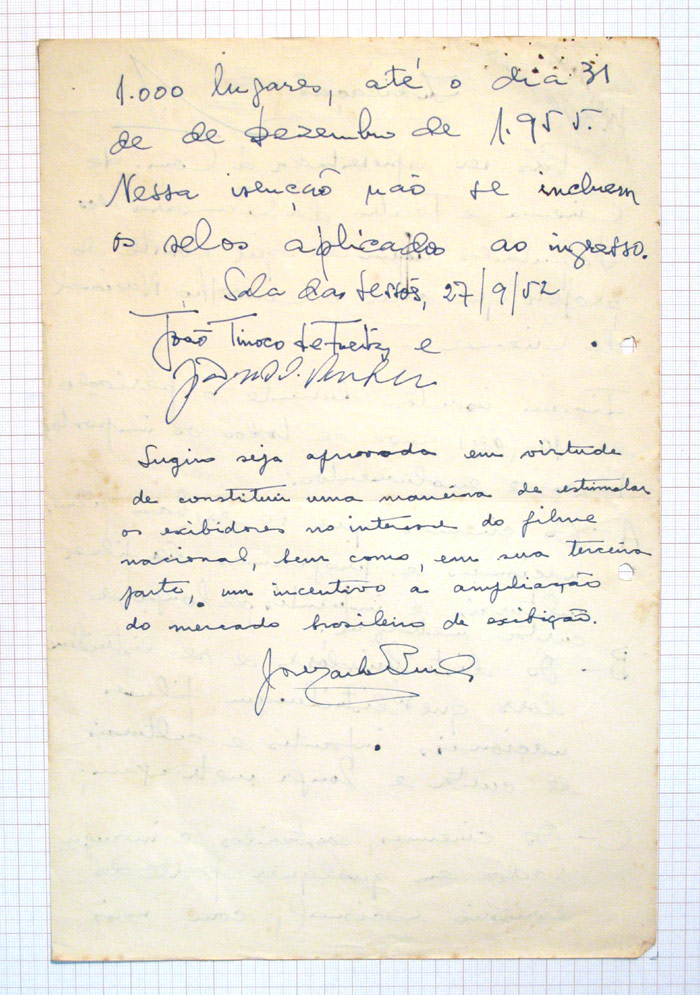 1.000 lugares, até o dia 31
de de dezembro de 1.955.
Nessa isenção não se incluem
os selos aplicados ao ingresso.
Sala das sessos, 27/9/52
João Tinoco de Freitas e
Sugiro seja aprovada em virtude
de constituir uma maneira de estimular
os exibidores no interesse do filme
nacional, bem como, em sua terceira
parte, um incentivo a ampliação
do mercado brasileiro de exibição.